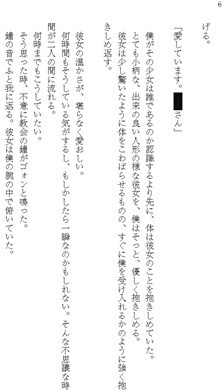 6
げる。
「愛しています。█さん」
僕がその少女は誰であるのか認識するより先に、体は彼女のことを抱きしめていた。
とても小柄な、出来の良い人形の様な彼女を、僕はそっと、優しく抱きしめる。
彼女は少し驚いたように体をこわばらせるものの、すぐに僕を受け入れるかのように強く抱
きしめ返す。
彼女の温かさが、堪らなく愛おしい。
何時間もそうしている気がするし、もしかしたら一瞬なのかもしれない。そんな不思議な時
間が二人の間に流れる。
何時までもこうしていたい。
そう思った時、不意に教会の鐘がゴォンと鳴った。
鐘の音でふと我に返る。彼女は僕の腕の中で俯いていた。